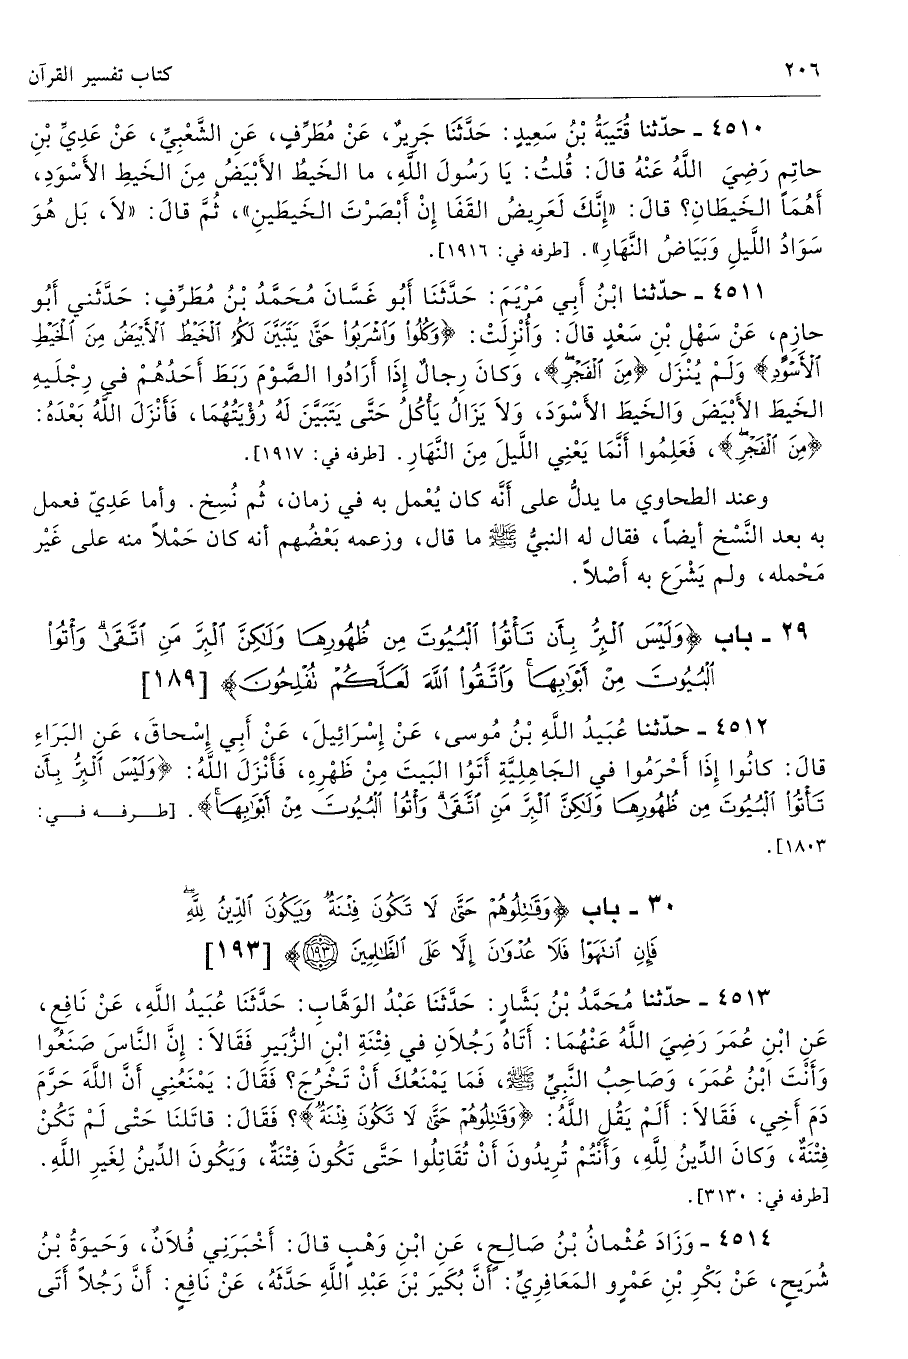 ٢٠٦ كتاب تفسير القرآن
٤٥١٠ ـ حدّثنا قُتَيبَةُ بْنُ سَعِيدٍ: حَدَّثَنَا جَرِيرٌ، عَنْ مُطَرِّفٍ، عَنِ الشَّعْبِيِّ، عَنْ عَدِيِّ بْنِ
حاتِمٍ رَضِيَ اللَّهُ عَنْهُ قالَ: قُلتُ: يَا رَسُولَ اللَّهِ، ما الخَيطُ الأَبْيَضُ مِنَ الخَيطِ الأَسْوَدِ،
أَهُمَا الخَيطَانِ؟ قالَ: «إِنَّكَ لَعَرِيضُ القَفَا إِنْ أَبْصَرْتَ الخَيطَينِ»، ثُمَّ قالَ: «لاَ، بَل هُوَ
سَوَادُ اللَّيلِ وَبَيَاضُ النَّهَارِ». [طرفه في: ١٩١٦].
٤٥١١ ـ حدّثنا ابْنُ أَبِي مَرْيَمَ: حَدَّثَنَا أَبُو غَسَّانَ مُحَمَّدُ بْنُ مُطَرِّفٍ: حَدَّثَني أَبُو
حازِمٍ، عَنْ سَهْلِ بْنِ سَعْدٍ قالَ: وَأُنْزِلَتْ: ﴿وَكُلُوا۟ وَٱشْرَبُوا۟ حَتَّىٰ يَتَبَيَّنَ لَكُمُ ٱلْخَيْطُ ٱلْأَبْيَضُ مِنَ ٱلْخَيْطِ
ٱلْأَسْوَدِ﴾ وَلَمْ يُنْزَل ﴿مِنَ ٱلْفَجْرِۖ﴾، وَكانَ رِجالٌ إِذَا أَرَادُوا الصَّوْمَ رَبَطَ أَحَدُهُمْ في رِجْلَيهِ
الخَيطَ الأَبْيَضَ وَالخَيطَ الأَسْوَدَ، وَلاَ يَزَالُ يَأْكُلُ حَتَّى يَتَبَيَّنَ لَهُ رُؤْيَتُهُمَا، فَأَنْزَلَ اللَّهُ بَعْدَهُ:
﴿مِنَ ٱلْفَجْرِۖ﴾، فَعَلِمُوا أَنَّمَا يَعْنِي اللَّيلَ مِنَ النَّهَارِ. [طرفه في: ١٩١٧].
وعند الطحاوي ما يدلُّ على أنَّه كان يُعْمل به في زمان، ثُم نُسِخ. وأما عَدِيّ فعمل
به بعد النَّسْخ أيضاً، فقال له النبيُّ ﷺ ما قال، وزعمه بَعْضُهم أنه كان حَمْلاً منه على غَيْر
مَحْمله، ولم يَشْرَع به أَصْلاً.
٢٩ ـ باب ﴿وَلَيْسَ ٱلْبِرُّ بِأَن تَأْتُوا۟ ٱلْبُيُوتَ مِن ظُهُورِهَا وَلَٰكِنَّ ٱلْبِرَّ مَنِ ٱتَّقَىٰۗ وَأْتُوا۟
ٱلْبُيُوتَ مِنْ أَبْوَٰبِهَاۚ وَٱتَّقُوا۟ ٱللَّهَ لَعَلَّكُمْ تُفْلِحُونَ﴾ [١٨٩]
٤٥١٢ ـ حدّثنا عُبَيدُ اللَّهِ بْنُ مُوسى، عَنْ إِسْرَائِيلَ، عَنْ أَبِي إِسْحاقَ، عَنِ البَرَاءِ
قالَ: كانُوا إِذَا أَحْرَمُوا في الجَاهِلِيَّةِ أَتَوُا البَيتَ مِنْ ظَهْرِهِ، فَأَنْزَلَ اللَّهُ: ﴿وَلَيْسَ ٱلْبِرُّ بِأَن
تَأْتُوا۟ ٱلْبُيُوتَ مِن ظُهُورِهَا وَلَٰكِنَّ ٱلْبِرَّ مَنِ ٱتَّقَىٰۗ وَأْتُوا۟ ٱلْبُيُوتَ مِنْ أَبْوَٰبِهَاۚ﴾. [طرفه في:
١٨٠٣].
٣٠ ـ باب ﴿وَقَٰتِلُوهُمْ حَتَّىٰ لَا تَكُونَ فِتْنَةٌ وَيَكُونَ ٱلدِّينُ لِلَّهِۖ
فَإِنِ ٱنتَهَوْا۟ فَلَا عُدْوَٰنَ إِلَّا عَلَى ٱلظَّٰلِمِينَ ١٩٣﴾ [١٩٣]
٤٥١٣ ـ حدّثنا مُحَمَّدُ بْنُ بَشَّارٍ: حَدَّثَنَا عَبْدُ الوَهَّابِ: حَدَّثَنَا عُبَيدُ اللَّهِ، عَنْ نَافِعٍ،
عَنِ ابْنِ عُمَرَ رَضِيَ اللَّهُ عَنْهُمَا: أَتَاهُ رَجُلاَنِ في فِتْنَةِ ابْنِ الزُّبَيرِ فَقَالاَ: إِنَّ النَّاسَ صَنَعُوا
وَأَنْتَ ابْنُ عُمَرَ، وَصَاحِبُ النَّبِيِّ ﷺ، فَمَا يَمْنَعُكَ أَنْ تَخْرُجَ؟ فَقَالَ: يَمْنَعُنِي أَنَّ اللَّهَ حَرَّمَ
دَمَ أَخِي، فَقَالاَ: أَلَمْ يَقُلِ اللَّهُ: ﴿وَقَٰتِلُوهُمْ حَتَّىٰ لَا تَكُونَ فِتْنَةٌ﴾؟ فَقَالَ: قاتَلنَا حَتَّى لَمْ تَكُنْ
فِتْنَةٌ، وَكانَ الدِّينُ لِلَّهِ، وَأَنْتُمْ تُرِيدُونَ أَنْ تُقَاتِلُوا حَتَّى تَكُونَ فِتْنَةٌ، وَيَكُونَ الدِّينُ لِغَيرِ اللَّهِ.
[طرفه في: ٣١٣٠].
٤٥١٤ ـ وَزَادَ عُثْمانُ بْنُ صَالِحٍ، عَنِ ابْنِ وَهْبٍ قالَ: أَخْبَرَنِي فُلاَنٌ، وَحَيوَةُ بْنُ
شُرَيحٍ، عَنْ بَكْرِ بْنِ عَمْرٍو المَعَافِرِيِّ: أَنَّ بُكَيرَ بْنَ عَبْدِ اللَّهِ حَدَّثَهُ، عَنْ نَافِعٍ: أَنَّ رَجُلاً أَتَى